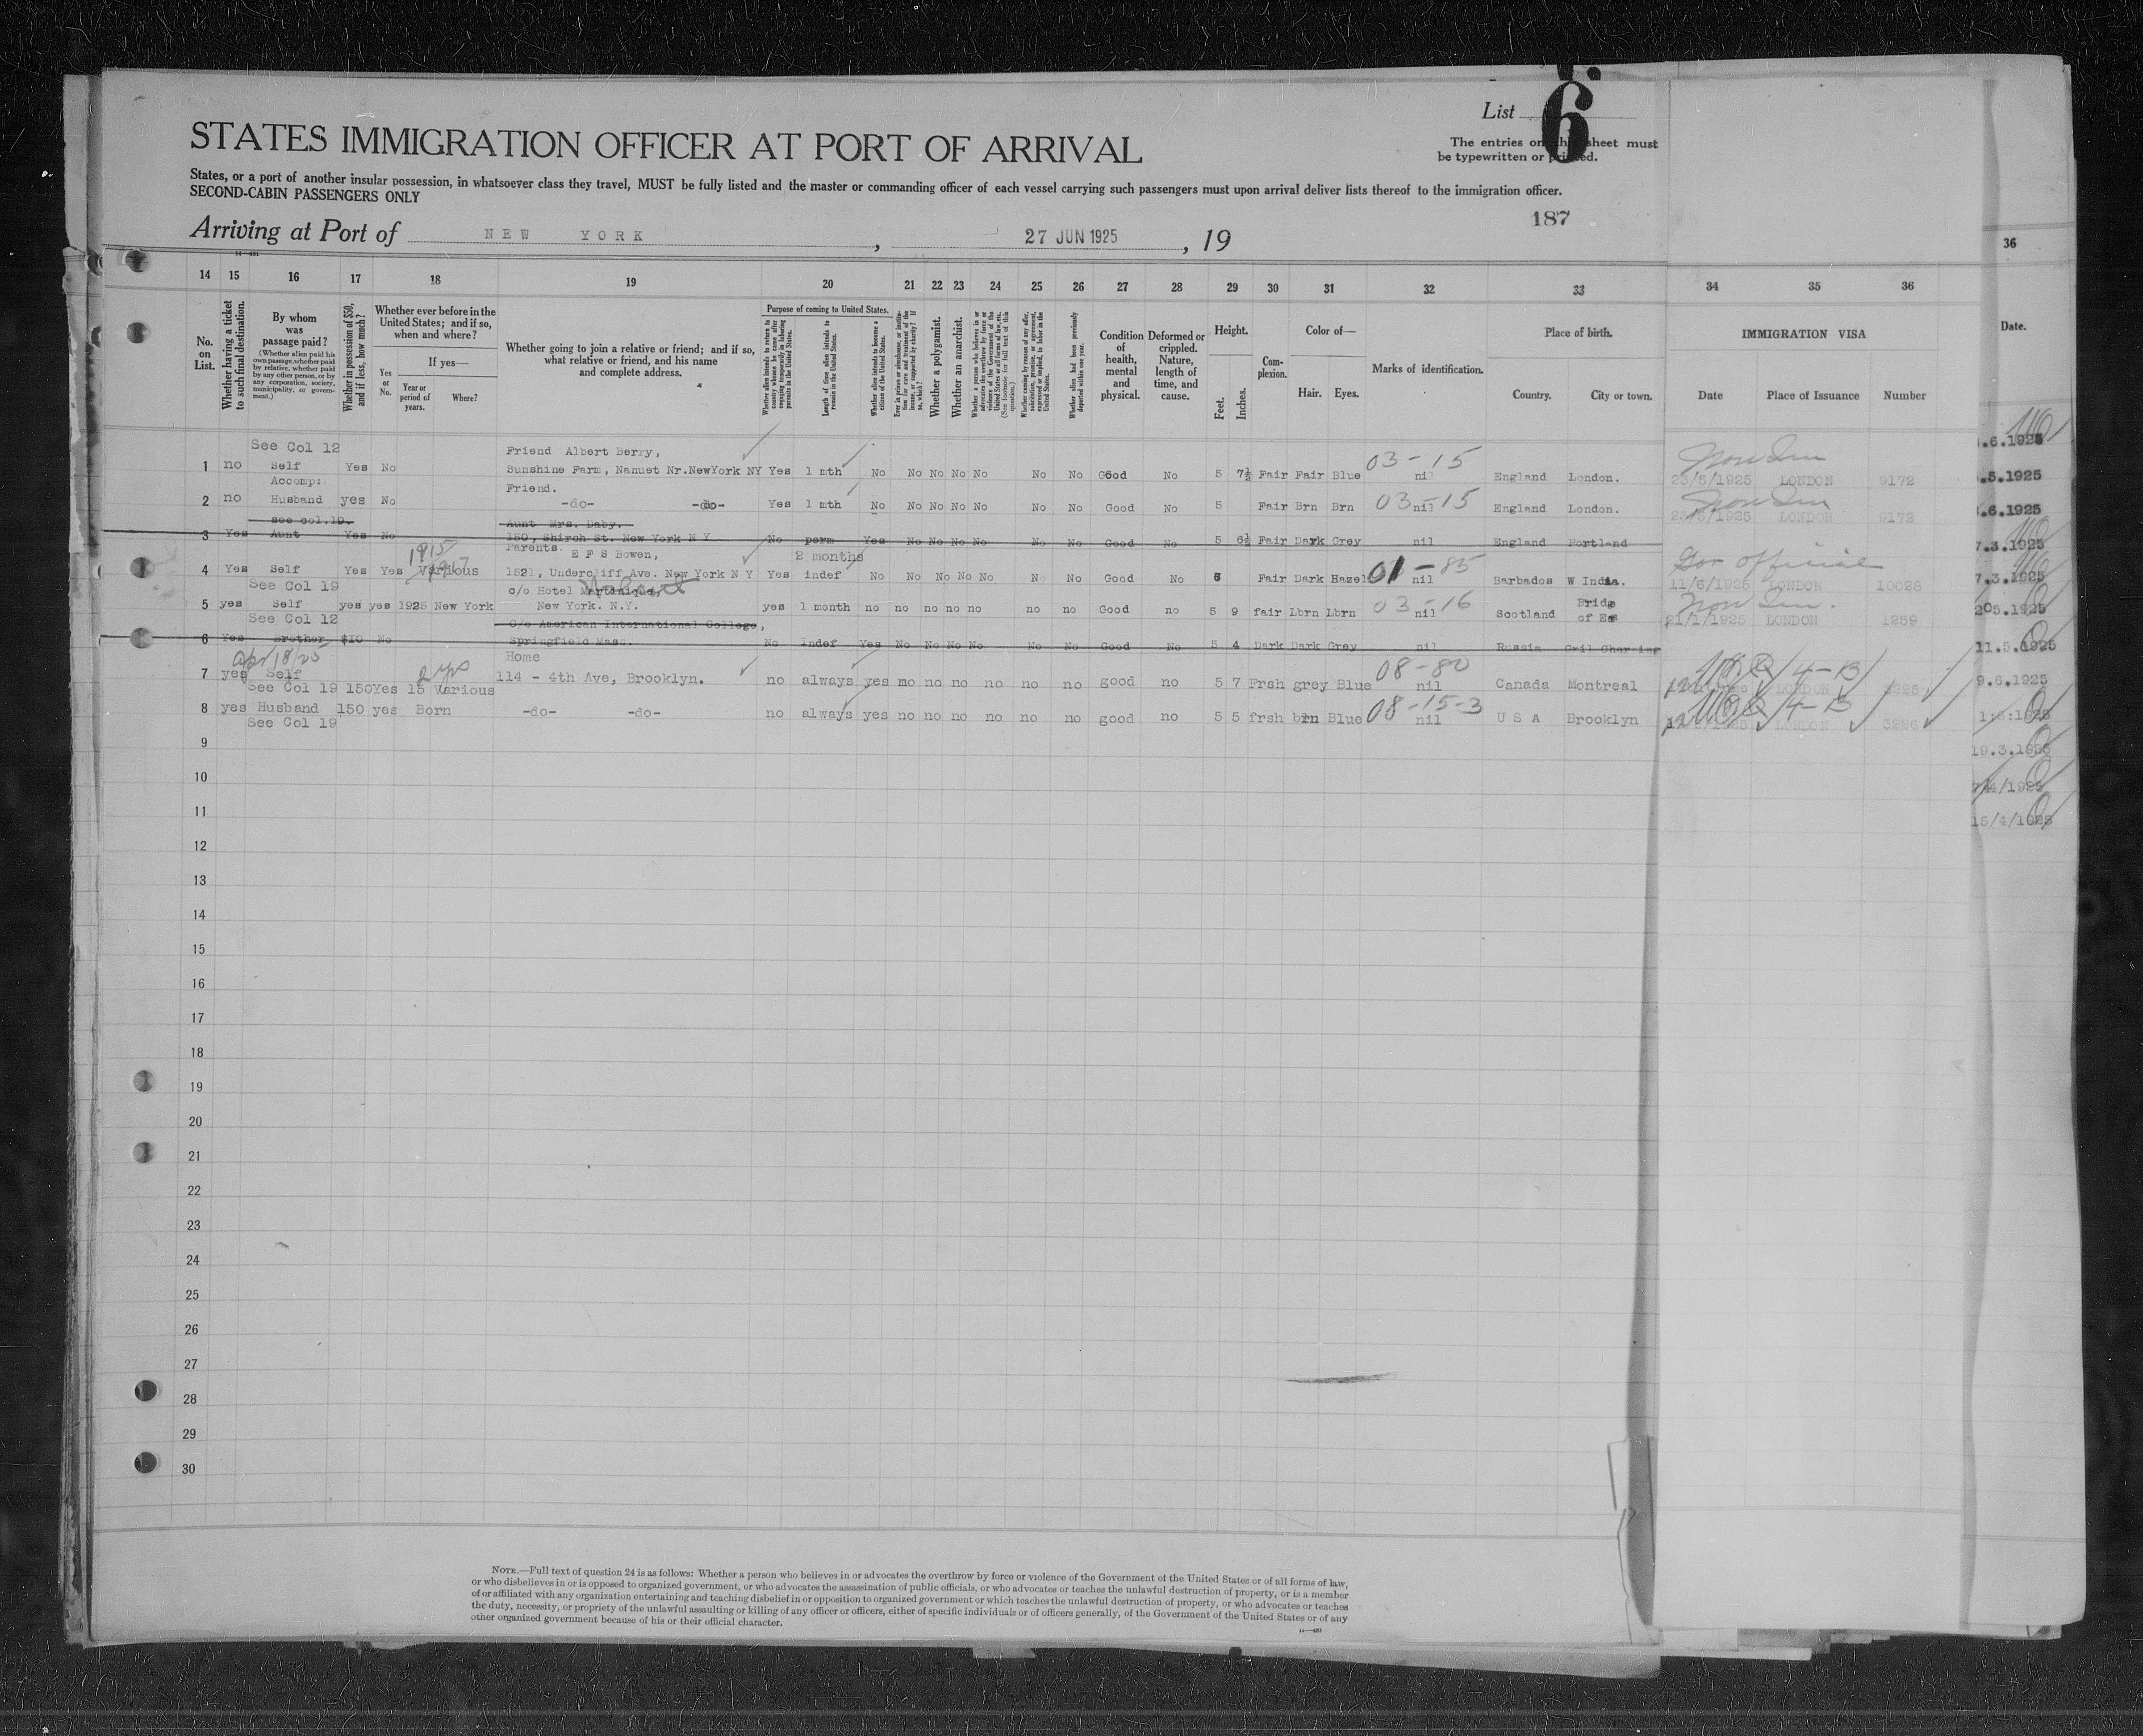 List 6
STATES IMMIGRATION OFFICER AT PORT OF ARRIVAL
The entries on this sheet must
be typewritten or printed.
States, or a port of another insular possession, in whatsoever class they travel, MUST be fully listed and the master or commanding officer of each vessel carrying such passengers must upon arrival deliver lists thereof to the immigration officer.
SECOND-CABIN PASSENGERS ONLY
187
Arriving at Port of NEW YORK, 27 JUN 1925, 19
14 15 16 17 18 19 20 21 22 23 24 25 26 27 28 29 30 31 32 33 34 35 36 36
No. on List.
Whether having a ticket to such final destination.
By whom was passage paid?
(Whether alien paid his own passage, whether paid by relative, whether paid by any other person, or by any corporation, society, municipality, or government.)
Whether in possession of $50, and if less, how much?
Whether ever before in the United States; and if so, when and where?
Yes or No.
If yes—
Year or period of years.
Where?
Whether going to join a relative or friend; and if so, what relative or friend, and his name and complete address.
Purpose of coming to United States.
Length of time alien intends to remain in the United States.
Whether alien intends to become a citizen of the United States.
Whether a polygamist.
Whether an anarchist.
Condition of health, mental and physical.
Deformed or crippled. Nature, length of time, and cause.
Height.
Feet. Inches.
Complexion.
Color of—
Hair. Eyes.
Marks of identification.
Place of birth.
Country. City or town.
IMMIGRATION VISA
Date Place of Issuance Number
Date.
See Col 12 Friend Albert Berry,
1 no Self Yes No Sunshine Farm, Nanuet Nr.NewYork NY Yes 1 mth No No No No No No No Good No 5 7½ Fair Fair Blue 03-15 nil England London. 23/5/1925 LONDON 9172
Accomp: Friend.
2 no Husband yes No -do- -do- Yes 1 mth No No No No No No No Good No 5 Fair Brn Brn 03-15 nil England London. 23/5/1925 LONDON 9172
see col.19. Aunt Mrs. Daby.
3 Yes Aunt Yes No 150, Shiroh St. New York N Y No perm Yes No No No No No No Good No 5 6½ Fair Dark Grey nil England Portland
Parents. E F S Bowen, 2 months
4 Yes Self Yes Yes 1915 Various 1521, Undercliff Ave. New York N Y Yes indef No No No No No No No Good No Fair Dark Hazel 01-85 nil Barbados W India. Gov official 11/6/1925 LONDON 10028
See Col 19 c/o Hotel Martinique,
5 yes Self yes yes 1925 New York New York. N.Y. yes 1 month no no no no no no no Good no 5 9 fair Lbrn Lbrn 03-16 nil Scotland Bridge of 21/1/1925 LONDON 1259
See Col 12 C/o American International College,
6 Yes Brother $10 No Springfield Mass. No Indef Yes No No No No No No Good No 5 4 Dark Dark Gray nil Russia
Apr 18/25 2 yrs Home
7 yes Self 150 Yes 15 Various 114 - 4th Ave, Brooklyn. no always yes mo no no no no no good no 5 7 Frsh grey Blue 08-80 nil Canada Montreal 4-B LONDON
See Col 19
8 yes Husband 150 yes Born -do- -do- no always yes no no no no no no good no 5 5 frsh brn Blue 08-15-3 nil U S A Brooklyn 4-B LONDON
See Col 19
9
10
11
12
13
14
15
16
17
18
19
20
21
22
23
24
25
26
27
28
29
30
.6.1925
.5.1925
.6.1925
7.3.1925
7.3.1925
11.5.1925
9.6.1925
19.3.1925
15/4/1925
NOTE.—Full text of question 24 is as follows: Whether a person who believes in or advocates the overthrow by force or violence of the Government of the United States or of all forms of law,
or who disbelieves in or is opposed to organized government, or who advocates the assassination of public officials, or who advocates or teaches the unlawful destruction of property, or is a member
of or affiliated with any organization entertaining and teaching disbelief in or opposition to organized government or which teaches the unlawful destruction of property, or who advocates or teaches
the duty, necessity, or propriety of the unlawful assaulting or killing of any officer or officers, either of specific individuals or of officers generally, of the Government of the United States or of any
other organized government because of his or their official character.